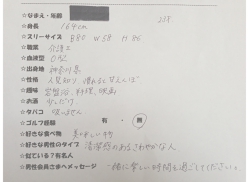 ☆なまえ・年齢 23才
☆身長 164cm
☆スリーサイズ B82 W58 H86
☆職業 介護士
☆血液型 O型
☆出身地 神奈川県
☆性格 人見知り、慣れるとなんしば
☆趣味 岩盤浴、料理、映画
☆お酒 少しだけ
☆タバコ 吸いません
☆ゴルフ経験 有・無
☆好きな食べ物 美味しい物
☆好きな男性のタイプ 清潔感のあるさわやかな人
☆似ている？有名人
☆男性会員さまへメッセージ 一緒に楽しい時間を過ごしてください。